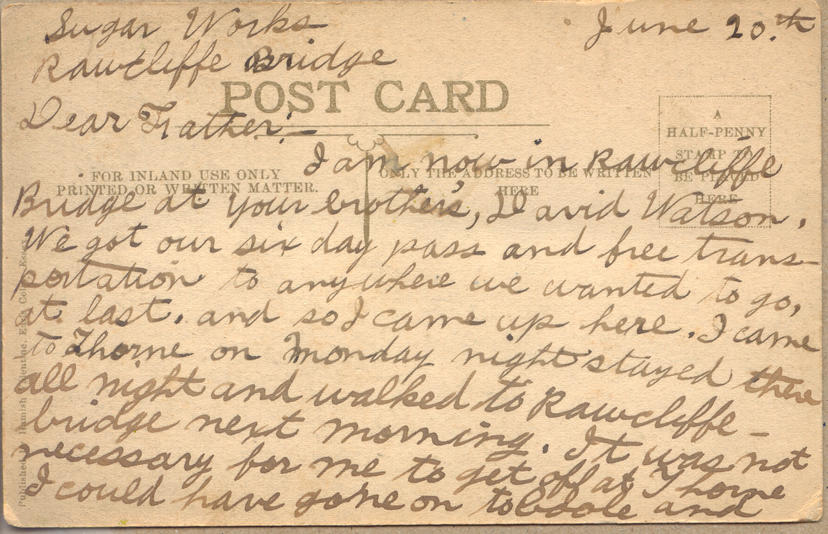 Sugar Works
June 20.th
Rawcliffe Bridge
POST CARD
Dear Father:—
A
HALF-PENNY
STAMP TO
BE PLACED
HERE
I am now in Rawcliffe
FOR INLAND USE ONLY
PRINTED OR WRITTEN MATTER.
ONLY THE ADDRESS TO BE WRITTEN
HERE
Bridge at your brother's, David Watson.
We got our six day pass and free trans-
portation to anywhere we wanted to go,
at last. and so I came up here. I came
to Thorne on Monday night stayed there
all night and walked to Rawcliffe-
bridge next morning. It was not
necessary for me to get off at Thorne
I could have gone on to Goole and